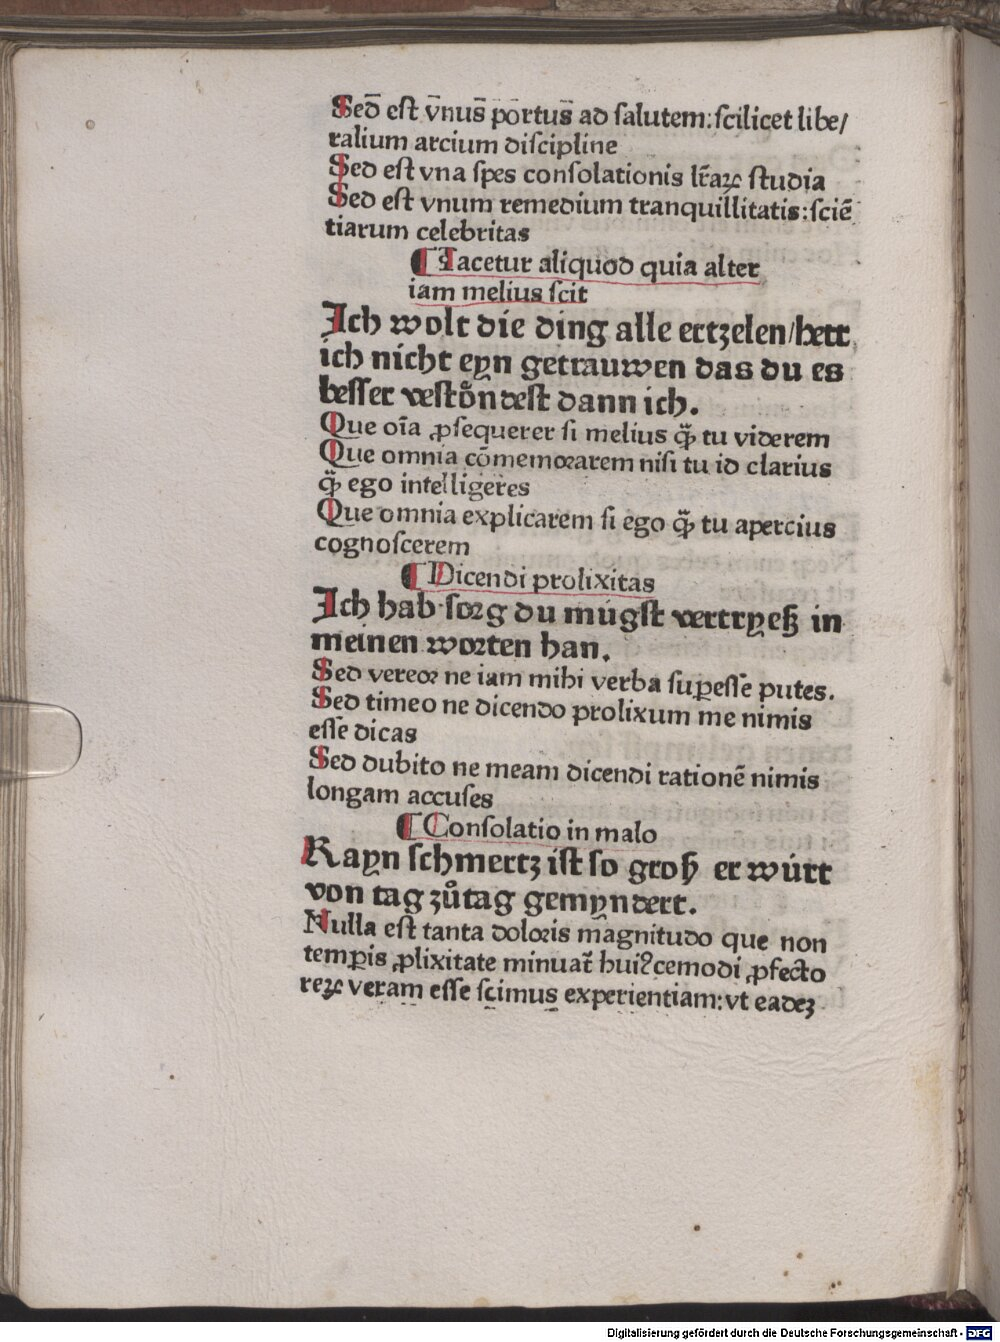 Sed̄ est v̄nus̄ portus̄ ad salutem: scilicet libe/
ralium arcium discipline
Sed est vna spes consolationis lr̄aꝝ studia
Sed est vnum remedium tranquillitatis: sciē
tiarum celebritas
¶ Tacetur aliquod quia alter
iam melius scit
Ich wolt die ding alle ertzelen/hett
ich nicht eyn getrauwen das du es
besser vestoͤndest dann ich.
Que oīa ꝓsequerer si melius q̄ꝫ tu viderem
Que omnia cōmemorarem nisi tu id clarius
q̄ꝫ ego intelligeres
Que omnia explicarem si ego q̄ꝫ tu apercius
cognoscerem
¶ Dicendi prolixitas
Ich hab sorg du mugst vertryeß in
meinen worten han.
Sed vereor ne iam mihi verba suꝑesse putes.
Sed timeo ne dicendo prolixum me nimis
esse dicas
Sed dubito ne meam dicendi rationē nimis
longam accuses
¶ Consolatio in malo
Kayn schmertz ist so groß er wúrt
von tag zůtag gemyndert.
Nulla est tanta doloris magnitudo que non
temꝑis ꝓlixitate minuat̄ huiꝰcemodi ꝓfecto
reꝝ veram esse scimus experientiam: vt eadeꝫ
Digitalisierung gefördert durch die Deutsche Forschungsgemeinschaft - DFG